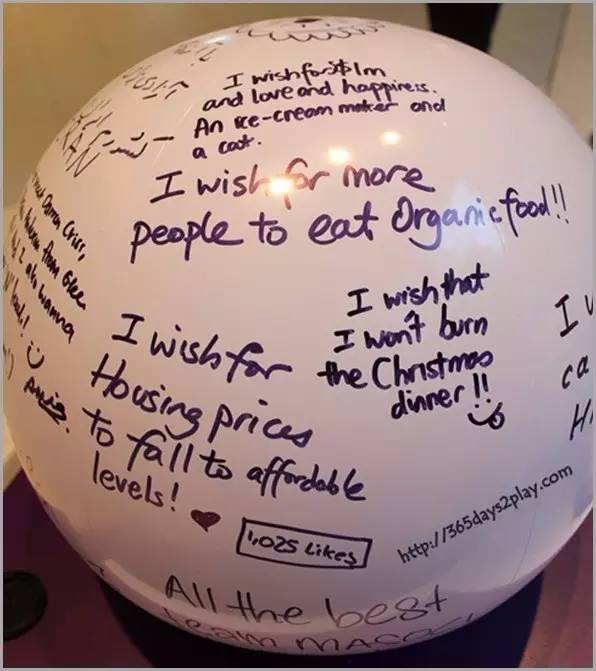 I wish for $1m
and love and happiness.
An ice-cream maker and
a cat.
I wish for more
people to eat Organic food!!
Darren Criss,
from Glee
wanna
I wish that
I won't burn
the Christmas
dinner!!
I wish for
Housing prices
to fall to affordable
levels!
1,025 Likes
http://365days2play.com
I
ca
All the best
team